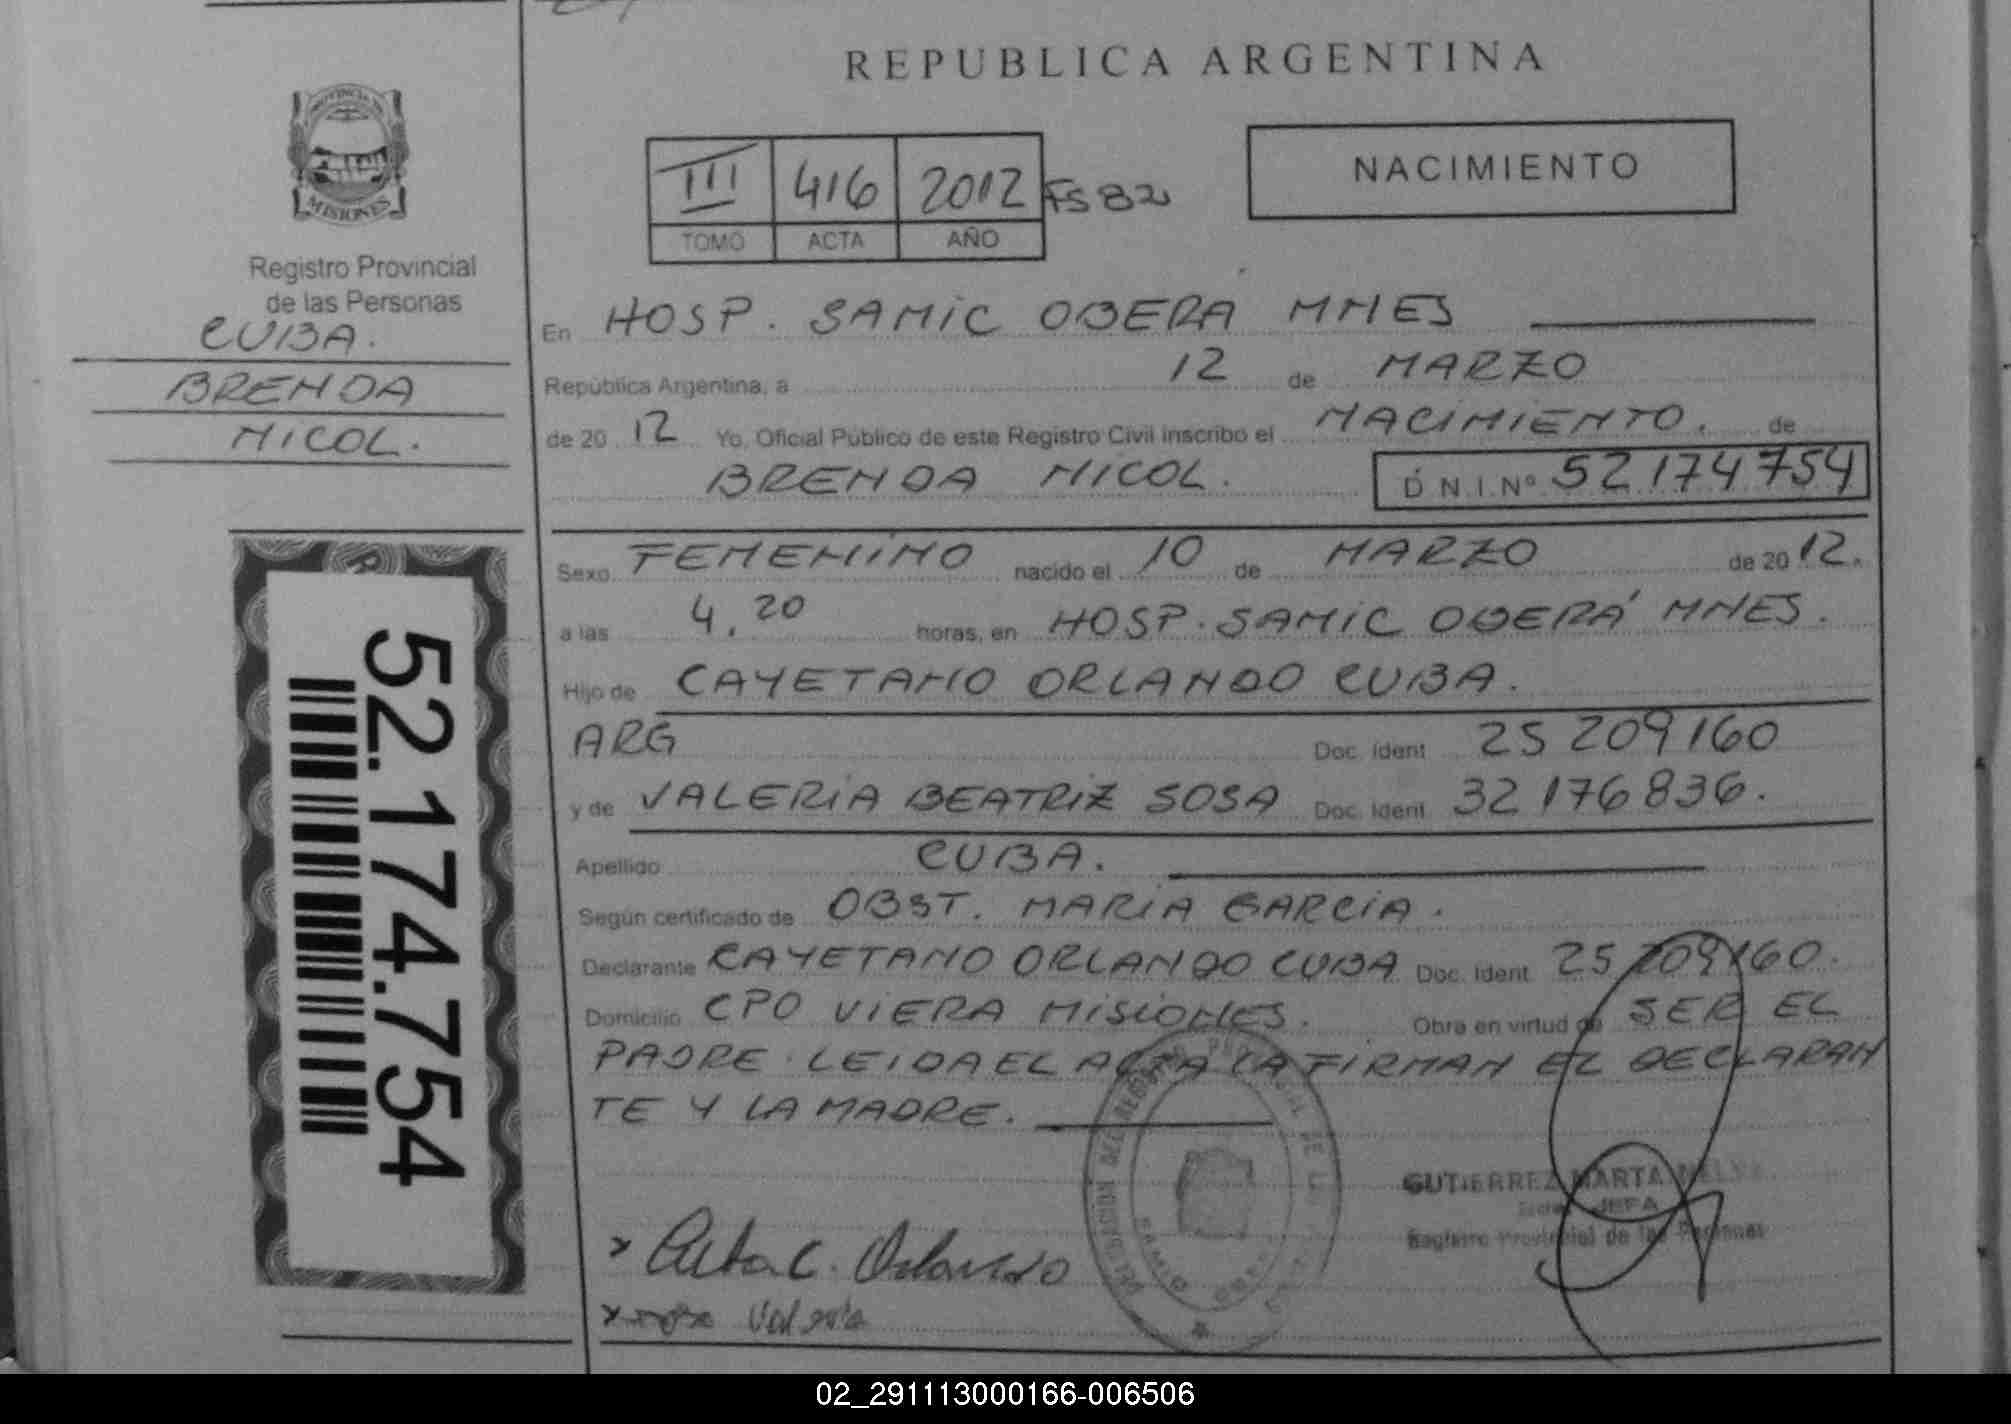 REPUBLICA ARGENTINA
PROVINCIA DE
MISIONES
Registro Provincial
de las Personas
CUBA.
BRENDA
NICOL.
III 416 2012 FS 82
TOMO ACTA AÑO
NACIMIENTO
En HOSP. SAMIC OBERÁ MNES
República Argentina, a 12 de MARZO
de 20 12 Yo, Oficial Público de este Registro Civil inscribo el NACIMIENTO. de
BRENDA NICOL. D.N.I.Nº 52174754
Sexo FEMENINO nacido el 10 de MARZO de 20 12.
a las 4,20 horas, en HOSP. SAMIC OBERÁ MNES.
Hijo de CAYETANO ORLANDO CUBA.
ARG Doc. Ident 25 209 160
y de VALERIA BEATRIZ SOSA Doc. Ident. 32 176 836.
Apellido CUBA.
Según certificado de OBST. MARIA GARCIA.
Declarante CAYETANO ORLANDO CUBA Doc. Ident. 25 209 160.
Domicilio CPO VIERA MISIONES. Obra en virtud de SER EL
PADRE. LEIDA EL ACTA LA FIRMAN EL DECLARAN
TE Y LA MADRE.
52.174.754
GUTIERREZ MARTA
JEFA
Registro Provincial de las Personas
x Cuba C. Orlando
Valeria
02_291113000166-006506